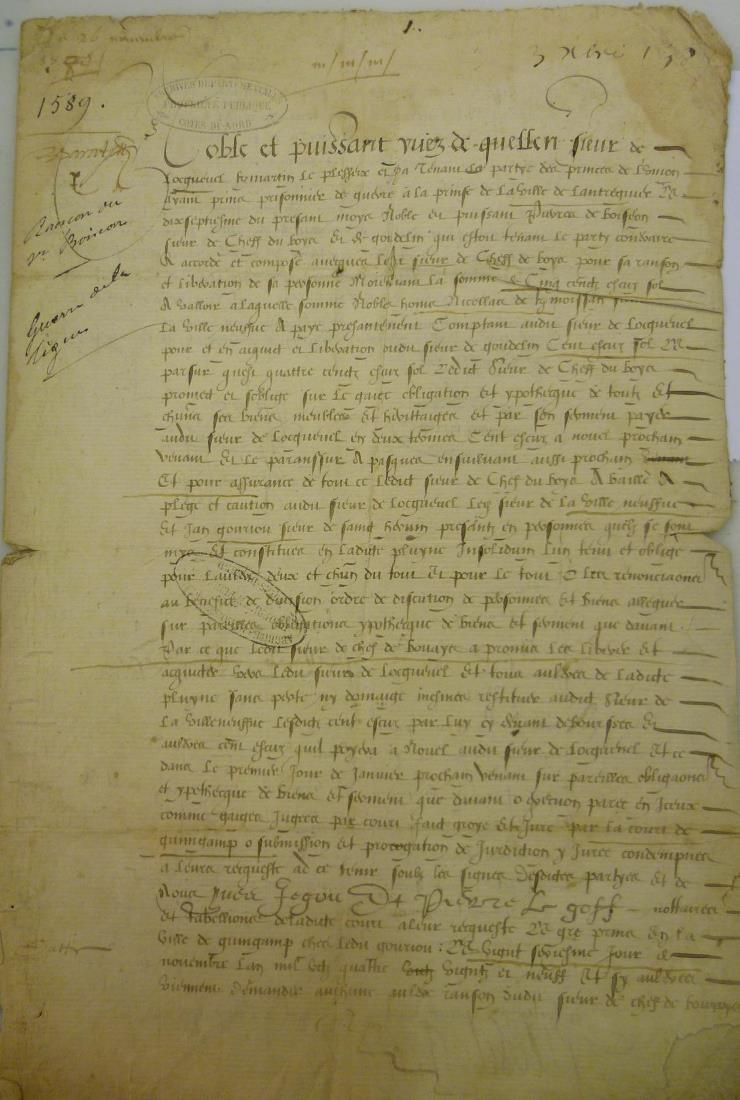 1.
1589.
ARCHIVES DEPARTEMENTALES
PROPRIETE PUBLIQUE
COTES-DU-NORD
Rancon du
sr Boiseon
Guerre de la
ligue
Noble et puissant yves de quellen sieur de
Locquevel tenant le partye des princes de lunion
ayant prins prisonnier de guerre a la prinse de la ville de lantreguer le
dixseptiesme du presant moys Noble et puissant Pierres de boiseon
sieur de Cheff du boys et de goudelin qui estoit tenant le party contraire
A accordé et composé avecques ledit sieur de Cheff de boys pour sa ranson
et liberation de sa personne moiennant la somme de Cinq centz escuz sol
A valloir a laquelle somme Noble home Nicollas de
La ville neuffve A payé presantement Comptant audit sieur de Locquevel
pour et en acquict et liberation dudit sieur de goudelin Cent escuz sol Et
par sur quatre centz escuz sol ledict sieur de Cheff du boys
promect et soblige sur le gaige obligation et ypothecque de toutz et
chuns ses biens meubles et herittaiges et par son serment payer
audit sieur de Locquevel en deux termes Cent escuz a nouel prochain
venant Et le paranssur A pasques ensuilvant aussi prochain
Et pour assurance de tout ce ledict sieur de Chef du boys A baillé A
plege et caution audit sieur de Locquevel les sieur de la ville neuffve
et Jan gouriou sieur de sainct presantz en personnes quelz se sont
mys et constitues en ladite pluvyne Insolidum lun tenu et obligé
pour lautre deux et chun du tout Et pour le tout O les renonciaons
au benefice de division ordre de discution de personnes et biens
sur pareilles obligations ypothecque de biens et serment que davant
Par ce que ledit sieur de chef de bouays a promis les liberer et
acquicter vers ledit sieur de Locquevel et tous aultres de ladite
pluvyne sans perte ny domaige restituer audict sieur de
La Villeneuffve lesdits cent escuz par luy cy davant deboursees et
aultres cent escuz quil payera a Nouel audit sieur de Locquevel et ce
dans le premier Jour de Janvier prochain venant sur pareilles obligaons
et ypothecque de biens et serment que davant o execution parce en Iceux
comme gaiges Jugees par court Faict greyé et Juré par la court de
guingamp o submission et prorogation de Jurdiction y Jurez condempnes
a leurs requeste ad ce tenir soubz les signes desdites partyes et de
Nous yvres Jegou Et Pierre Le goff nottaires
et tabellions deladite court a leur requeste Et gre prins En la
ville de guingamp chez ledit gouriou : Le vignt seixiesme Jour de
novembre Lan mil vcc quattre vigntz et neuff Et sy aultres
viennent demander aulchune aultre ranson dudit sieur de chef de bouays